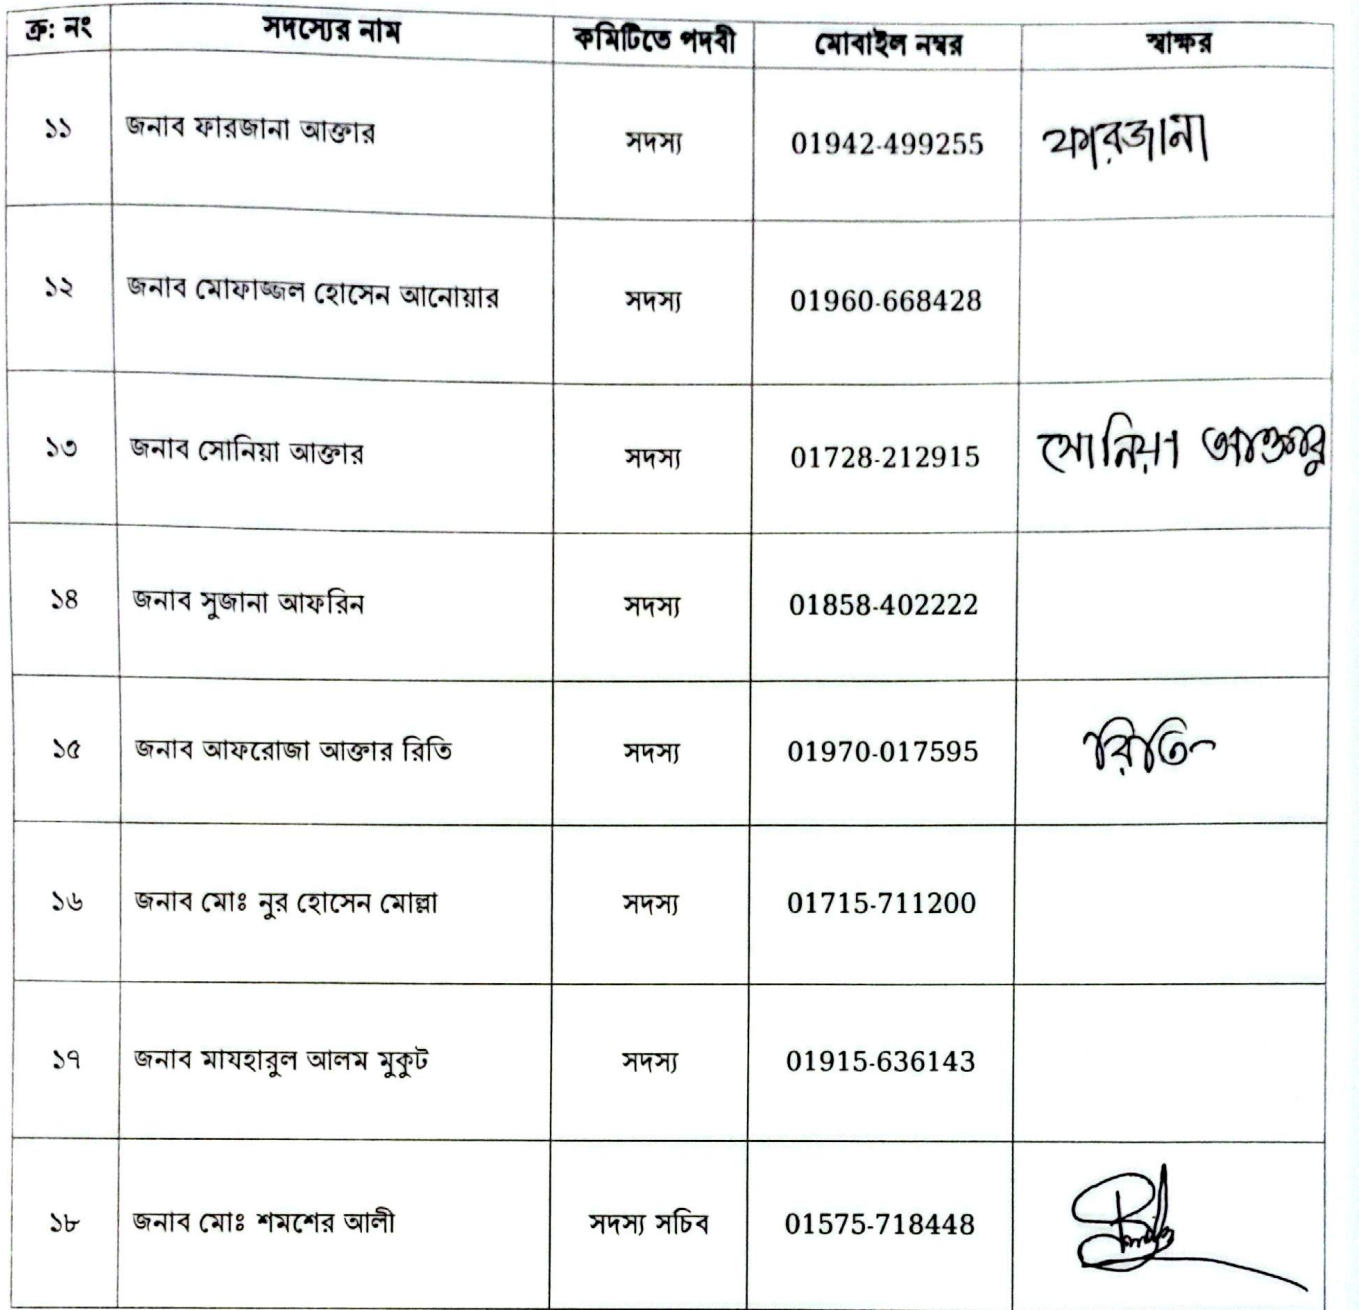 ক্র: নং সদস্যের নাম কমিটিতে পদবী মোবাইল নম্বর স্বাক্ষর
১১ জনাব ফারজানা আক্তার সদস্য 01942-499255 ফারজানা
১২ জনাব মোফাজ্জল হোসেন আনোয়ার সদস্য 01960-668428
১৩ জনাব সোনিয়া আক্তার সদস্য 01728-212915 সোনিয়া আক্তার
১৪ জনাব সুজানা আফরিন সদস্য 01858-402222
১৫ জনাব আফরোজা আক্তার রিতি সদস্য 01970-017595 রিতি
১৬ জনাব মোঃ নুর হোসেন মোল্লা সদস্য 01715-711200
১৭ জনাব মাযহারুল আলম মুকুট সদস্য 01915-636143
১৮ জনাব মোঃ শমশের আলী সদস্য সচিব 01575-718448